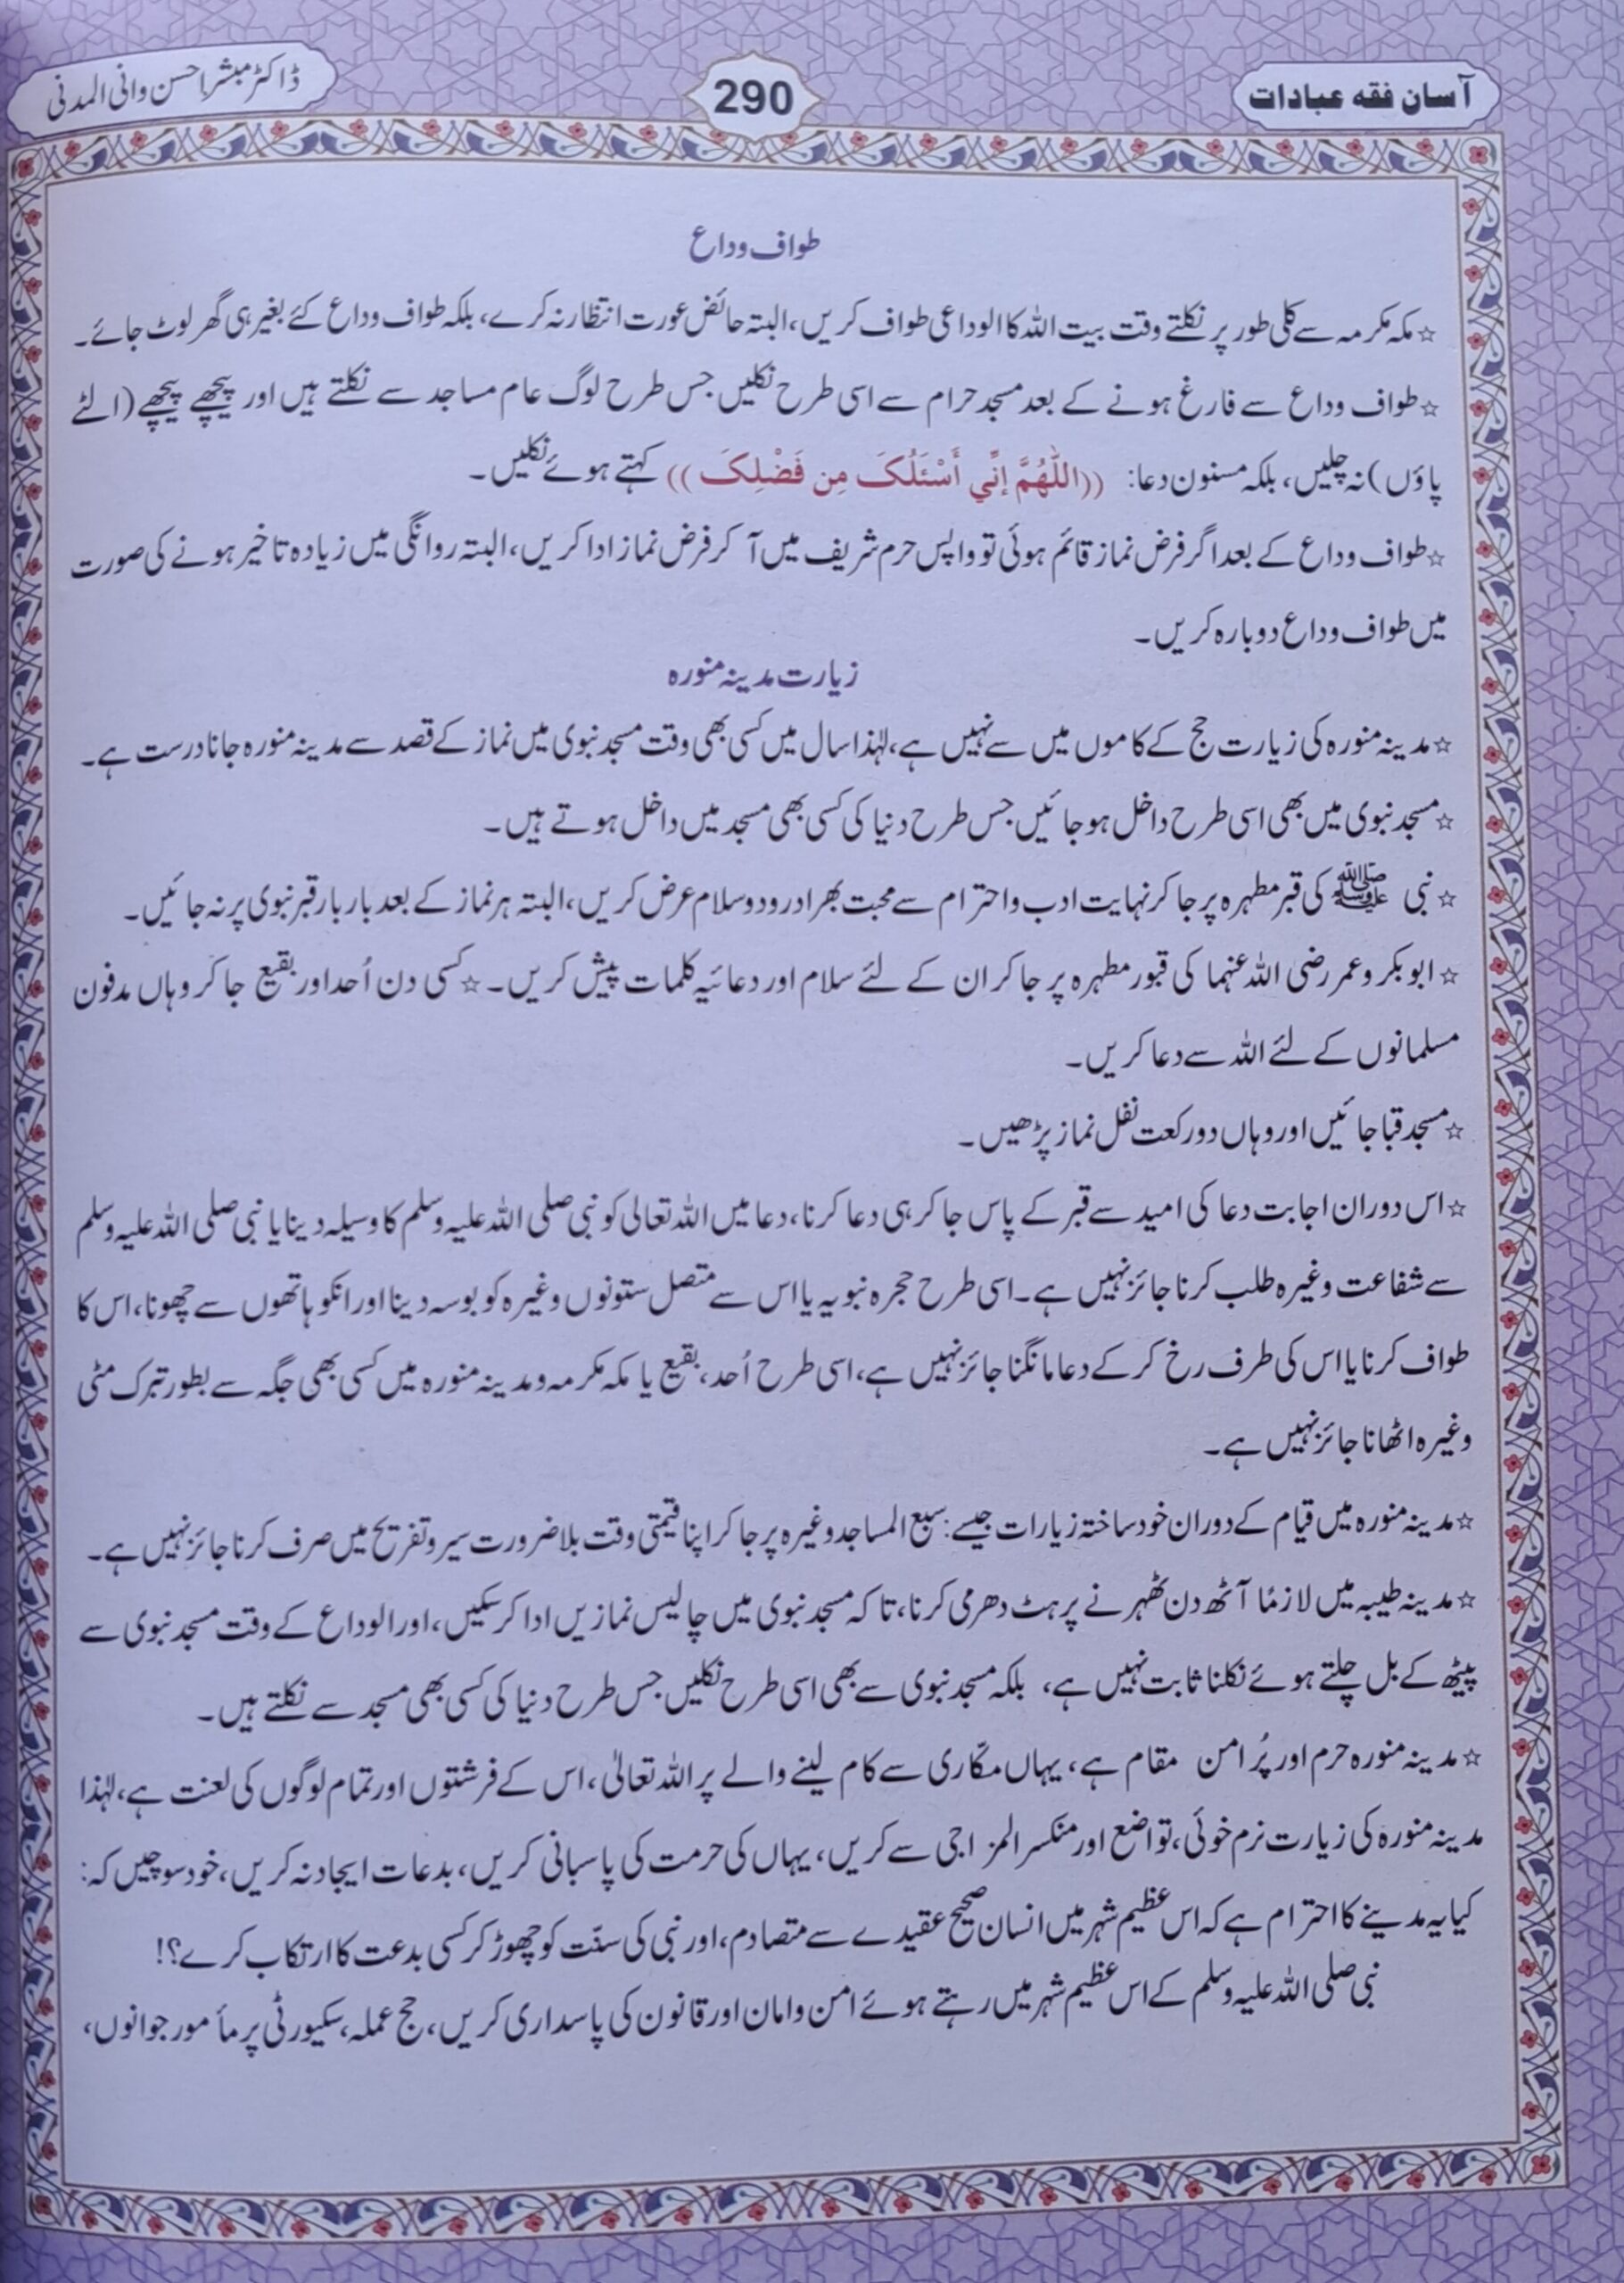 آسان فقہ عبادات
290
ڈاکٹر مبشر احسن وانی المدنی
طواف وداع
☆ مکہ مکرمہ سے کلی طور پر نکلتے وقت بیت اللہ کا الوداعی طواف کریں، البتہ حائض عورت انتظار نہ کرے، بلکہ طواف وداع کئے بغیر ہی گھر لوٹ جائے۔
☆ طواف وداع سے فارغ ہونے کے بعد مسجد حرام سے اسی طرح نکلیں جس طرح لوگ عام مساجد سے نکلتے ہیں اور پیچھے پیچھے (الٹے
پاؤں) نہ چلیں، بلکہ مسنون دعا: ((اللّٰهُمَّ إنِّي أَسْئَلُکَ مِن فَضْلِکَ)) کہتے ہوئے نکلیں۔
☆ طواف وداع کے بعد اگر فرض نماز قائم ہوئی تو واپس حرم شریف میں آ کر فرض نماز ادا کریں، البتہ روانگی میں زیادہ تاخیر ہونے کی صورت
میں طواف وداع دوبارہ کریں۔
زیارت مدینہ منورہ
☆ مدینہ منورہ کی زیارت حج کے کاموں میں سے نہیں ہے، لہٰذا سال میں کسی بھی وقت مسجد نبوی میں نماز کے قصد سے مدینہ منورہ جانا درست ہے۔
☆ مسجد نبوی میں بھی اسی طرح داخل ہو جائیں جس طرح دنیا کی کسی بھی مسجد میں داخل ہوتے ہیں۔
☆ نبی ﷺ کی قبر مطہرہ پر جا کر نہایت ادب و احترام سے محبت بھرا درود و سلام عرض کریں، البتہ ہر نماز کے بعد بار بار قبر نبوی پر نہ جائیں۔
☆ ابوبکر و عمر رضی اللہ عنہما کی قبور مطہرہ پر جا کر ان کے لئے سلام اور دعائیہ کلمات پیش کریں۔ ☆ کسی دن اُحد اور بقیع جا کر وہاں مدفون
مسلمانوں کے لئے اللہ سے دعا کریں۔
☆ مسجد قبا جائیں اور وہاں دو رکعت نفل نماز پڑھیں۔
☆ اس دوران اجابت دعا کی امید سے قبر کے پاس جا کر ہی دعا کرنا، دعا میں اللہ تعالی کو نبی صلی اللہ علیہ وسلم کا وسیلہ دینا یا نبی صلی اللہ علیہ وسلم
سے شفاعت وغیرہ طلب کرنا جائز نہیں ہے۔ اسی طرح حجرہ نبویہ یا اس سے متصل ستونوں وغیرہ کو بوسہ دینا اور انکو ہاتھوں سے چھونا، اس کا
طواف کرنا یا اس کی طرف رخ کر کے دعا مانگنا جائز نہیں ہے، اسی طرح اُحد، بقیع یا مکہ مکرمہ و مدینہ منورہ میں کسی بھی جگہ سے بطور تبرک مٹی
وغیرہ اٹھانا جائز نہیں ہے۔
☆ مدینہ منورہ میں قیام کے دوران خود ساختہ زیارات جیسے: سبع المساجد وغیرہ پر جا کر اپنا قیمتی وقت بلا ضرورت سیر و تفریح میں صرف کرنا جائز نہیں ہے۔
☆ مدینہ طیبہ میں لازمًا آٹھ دن ٹھہرنے پر ہٹ دھرمی کرنا، تا کہ مسجد نبوی میں چالیس نمازیں ادا کر سکیں، اور الوداع کے وقت مسجد نبوی سے
پیٹھ کے بل چلتے ہوئے نکلنا ثابت نہیں ہے، بلکہ مسجد نبوی سے بھی اسی طرح نکلیں جس طرح دنیا کی کسی بھی مسجد سے نکلتے ہیں۔
☆ مدینہ منورہ حرم اور پُر امن مقام ہے، یہاں مکّاری سے کام لینے والے پر اللہ تعالیٰ، اس کے فرشتوں اور تمام لوگوں کی لعنت ہے، لہٰذا
مدینہ منورہ کی زیارت نرم خوئی، تواضع اور منکسر المزاجی سے کریں، یہاں کی حرمت کی پاسبانی کریں، بدعات ایجاد نہ کریں، خود سوچیں کہ:
کیا یہ مدینے کا احترام ہے کہ اس عظیم شہر میں انسان صحیح عقیدے سے متصادم، اور نبی کی سنّت کو چھوڑ کر کسی بدعت کا ارتکاب کرے؟!
نبی صلی اللہ علیہ وسلم کے اس عظیم شہر میں رہتے ہوئے امن و امان اور قانون کی پاسداری کریں، حج عملہ، سکیورٹی پر مأمور جوانوں،